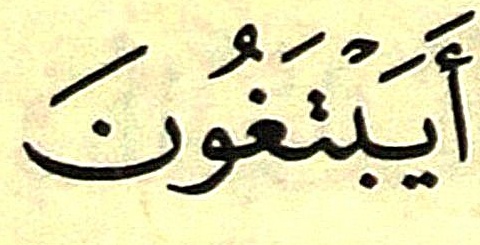 أَيَبْتَغُونَ